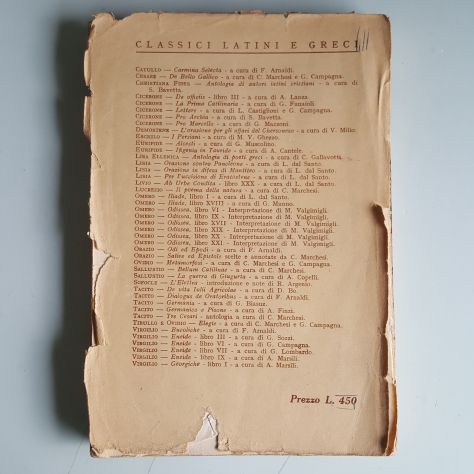 CLASSICI LATINI E GRECI
CATULLO — Carmina Selecta - a cura di F. Arnaldi.
CESARE — De Bello Gallico - a cura di C. Marchesi e G. Campagna.
CHRISTIANA FIDES — Antologia di autori latini cristiani - a cura di
S. Bavetta.
CICERONE — De officiis - libro III - a cura di A. Lanza.
CICERONE — La Prima Catilinaria - a cura di G.
CICERONE — Lettere - a cura di L. Castiglioni e G. Campagna.
CICERONE — Pro Archia - a cura di S. Bavetta.
CICERONE — Pro Marcello - a cura di G. Mazzoni.
DEMOSTENE — L'orazione per gli affari del Chersoneso - a cura di V. Milio.
ESCHILO — I Persiani - a cura di M. V. Ghezzo.
EURIPIDE — Alcesti - a cura di G. Muscolino.
EURIPIDE — Ifigenia in Tauride - a cura di A. Cantele.
LIRA ELLENICA — Antologia di poeti greci - a cura di C. Gallavotti.
LISIA — Orazione contro Pancleone - a cura di L. dal Santo.
LISIA — Orazione in difesa di Mantiteo - a cura di L. dal Santo.
LISIA — Per l'uccisione di Eratostene - a cura di L. dal Santo.
LIVIO — Ab Urbe Condita - libro XXX - a cura di L. dal Santo.
LUCREZIO — Il poema della natura - a cura di C. Marchesi.
OMERO — Iliade, libro I - a cura di L. dal Santo.
OMERO — Iliade, libro XVIII - a cura di G. Manno.
OMERO — Odissea, libro VI - Interpretazione di M. Valgimigli.
OMERO — Odissea, libro IX - Interpretazione di M. Valgimigli.
OMERO — Odissea, libro XVII - Interpretazione di M. Valgimigli.
OMERO — Odissea, libro XIX - Interpretazione di M. Valgimigli.
OMERO — Odissea, libro XX - Interpretazione di M. Valgimigli.
OMERO — Odissea, libro XXI - Interpretazione di M. Valgimigli.
ORAZIO — Odi ed Epodi - a cura di F. Arnaldi.
ORAZIO — Satire ed Epistole scelte e annotate da C. Marchesi.
OVIDIO — Metamorfosi - a cura di C. Marchesi e G. Campagna.
SALLUSTIO — Bellum Catilinae - a cura di C. Marchesi.
SALLUSTIO — La guerra di Giugurta - a cura di A. Copelli.
SOFOCLE — L'Elettra - introduzione e note di R. Argenio.
TACITO — De vita Iulii Agricolae - a cura di D. Bo.
TACITO — Dialogus de Oratoribus - a cura di F. Arnaldi.
TACITO — Germania - a cura di G. Biasuz.
TACITO — Germanico e Pisone - a cura di A. Finzi.
TACITO — Tre Cesari - antologia a cura di C. Marchesi.
TIBULLO E OVIDIO — Elegie - a cura di C. Marchesi e G. Campagna.
VIRGILIO — Bucoliche - a cura di F. Arnaldi.
VIRGILIO — Eneide - libro III - a cura di G. Sozzi.
VIRGILIO — Eneide - libro VI - a cura di G. Campagna.
VIRGILIO — Eneide - libro VII - a cura di G. Lombardo.
VIRGILIO — Eneide - libro IX - a cura di A. Marsili.
VIRGILIO — Georgiche - libro I - a cura di A. Marsili.
Prezzo L. 450